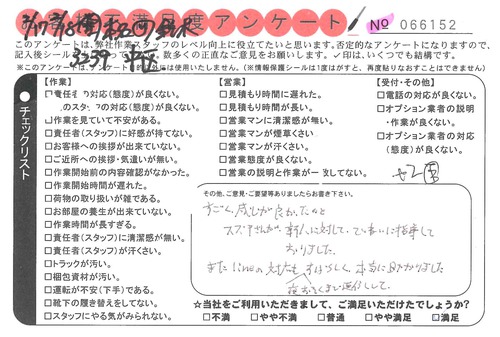 足度アンケート
No 066152
このアンケートは、弊社作業スタッフのレベル向上に役立てたいと思います。否定的なアンケートになりますので、
記入後シール 数多くの正直なご意見をお願いします。✓印は、いくつでも結構です。
※このアンケートは、アンケート目的以外には使用いたしません。(※情報保護シールは1度はがすと、再度貼りなおすことはできません)
チェックリスト
【作業】
□責任者 の対応(態度)が良くない。
のスタッフの対応(態度)が良くない。
□作業を見ていて不安がある。
□責任者(スタッフ)に好感が持てない。
□お客様への挨拶が出来ていない。
□ご近所への挨拶・気遣いが無い。
□作業開始前の内容確認がなかった。
□作業開始時間が遅れた。
□荷物の取り扱いが雑である。
□お部屋の養生が出来ていない。
□作業時間が長すぎる。
□責任者(スタッフ)に清潔感が無い。
□責任者(スタッフ)が汗くさい。
□トラックが汚い。
□梱包資材が汚い。
□運転が不安(下手)である。
□靴下の履き替えをしてない。
□スタッフにやる気がみられない。
【営業】
□見積もり時間に遅れた。
□見積もり時間が長い。
□営業マンに清潔感が無い。
□営業マンが煙草くさい
□営業マンが汗くさい。
□営業態度が良くない。
□営業の説明と作業が 致してない。
【受付・その他】
□電話の対応が良くない。
□オプション業者の説明
・作業が良くない。
□オプション業者の対応
(態度)が良くない。
その他、ご意見・ご要望等ありましたらお書き下さい。
すごく、感じが良かったのと
スズキさんが、新人に対して、ていねいに指導して
おりました。
また lineの対応もすばらしく、本当に助かりました
夜おそくまで返信して。
☆当社をご利用いただきまして、ご満足いただけたでしょうか?
□不満 □やや不満 □普通 □やや満足 ☑満足